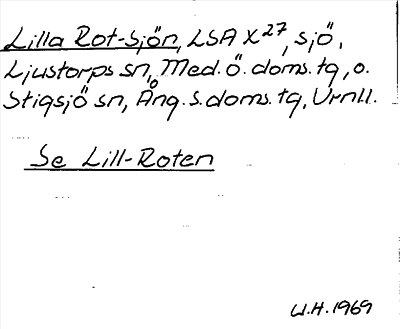 Lilla Rot-Sjön, LSA X27, sjö,
Ljustorps sn, Med. ö. doms. tg, o.
Stigsjö sn, Ång. s. doms. tg, Vrnll.
Se Lill-Roten
W.H. 1969